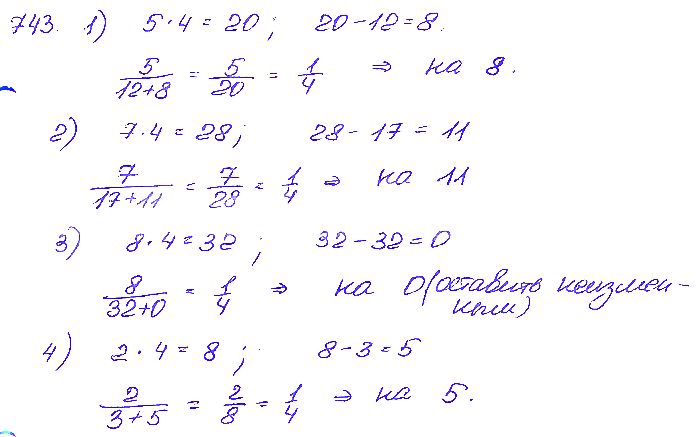 743. 1) 5·4 = 20; 20-12=8.
5/(12+8) = 5/20 = 1/4 ⇒ на 8.
2) 7·4 = 28; 28-17 = 11
7/(17+11) = 7/28 = 1/4 ⇒ на 11
3) 8·4 = 32; 32-32=0
8/(32+0) = 1/4 ⇒ на 0 (оставить неизмен-
ным)
4) 2·4 = 8; 8-3=5
2/(3+5) = 2/8 = 1/4 ⇒ на 5.